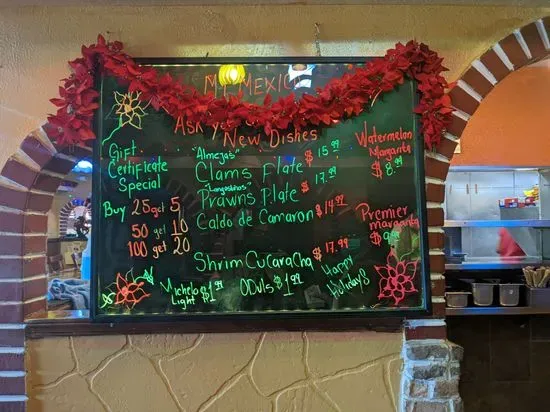 MI MEXICO
Ask yo
New Dishes
Gift
Certificate
Special
Buy 25 get 5
50 get 10
100 get 20
"Almejas"
Clams Plate $15.99
"Langostinos"
Prawns Plate $17.99
Caldo de Camaron $14.99
ShrimCucaracha $17.99
Michelob
Light $1.99
ODuls $1.99
Watermelon
Margarita
$8.99
Premier
margarita
Happy
Holidays